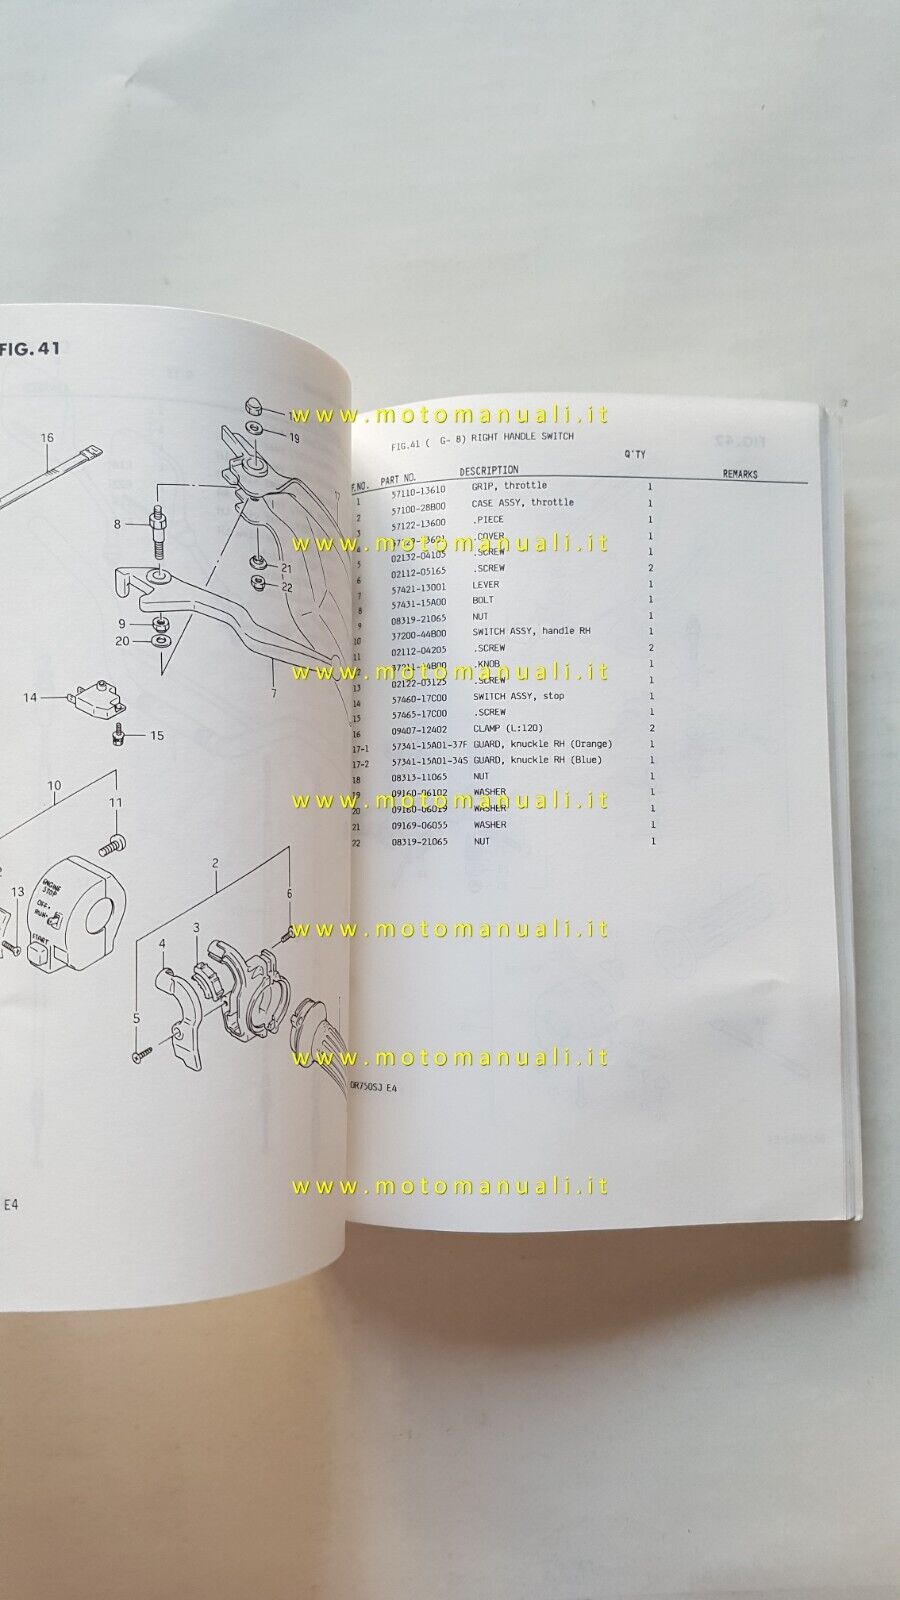 FIG. 41
16
19
8
21
22
9
20
7
14
15
10
11
ENGINE
STOP
OFF
RUN
START
13
2
6
3
4
5
E4
www.motomanuali.it
FIG.41 ( G- 8) RIGHT HANDLE SWITCH
F.NO. PART NO. DESCRIPTION Q'TY REMARKS
1 57110-13610 GRIP, throttle 1
2 57100-28B00 CASE ASSY, throttle 1
3 57122-13600 .PIECE 1
www.motomanuali.it
.COVER 1
5 02132-04105 .SCREW 1
6 02112-05165 .SCREW 2
7 57421-13001 LEVER 1
8 57431-15A00 BOLT 1
9 08319-21065 NUT 1
10 37200-44B00 SWITCH ASSY, handle RH 1
11 02112-04205 .SCREW 2
www.motomanuali.it
.KNOB 1
13 02122-03125 .SCREW 1
14 57460-17C00 SWITCH ASSY, stop 1
15 57465-17C00 .SCREW 1
16 09407-12402 CLAMP (L:120) 2
17-1 57341-15A01-37F GUARD, knuckle RH (Orange) 1
17-2 57341-15A01-34S GUARD, knuckle RH (Blue) 1
18 08313-11065 NUT 1
19 09160-06102 WASHER 1
www.motomanuali.it
20 09160-06019 WASHER 1
21 09169-06055 WASHER 1
22 08319-21065 NUT 1
www.motomanuali.it
www.motomanuali.it
DR750SJ E4
www.motomanuali.it